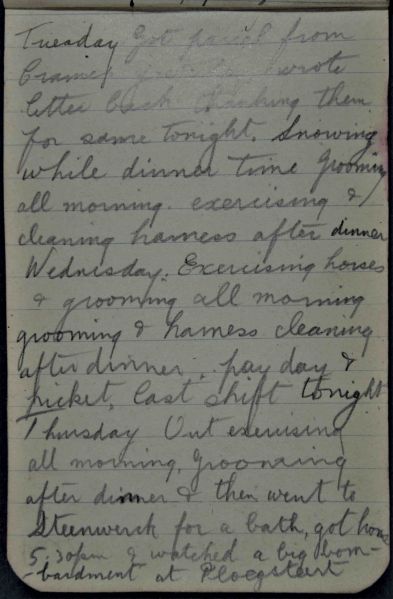 Tuesday Got parcel from
Cramer yesterday wrote
letter back thanking them
for same tonight. Snowing
while dinner time Grooming
all morning. exercising &
cleaning harness after dinner
Wednesday. Exercising horses
& grooming all morning
grooming & harness cleaning
after dinner. pay day &
picket, last shift tonight
Thursday Out exercising
all morning, Grooming
after dinner & then went to
Steenwerck for a bath, got home
5.30pm & watched a big bom-
-bardment at Ploegsteert